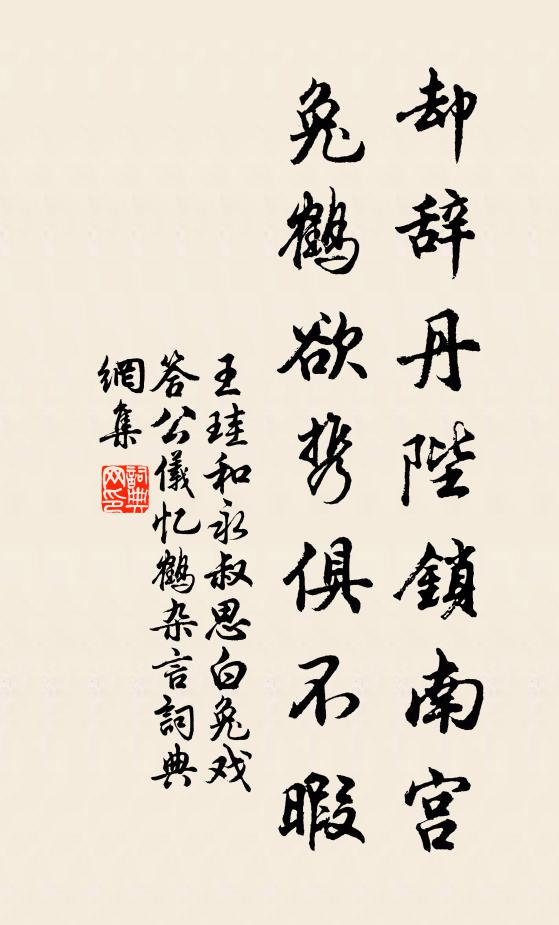 却辞丹陛鎖南宫
兔鶴欲携俱不暇
王珪和永叔思白兔戏
答公儀忆鶴杂言詞典
網集
詞典
网印